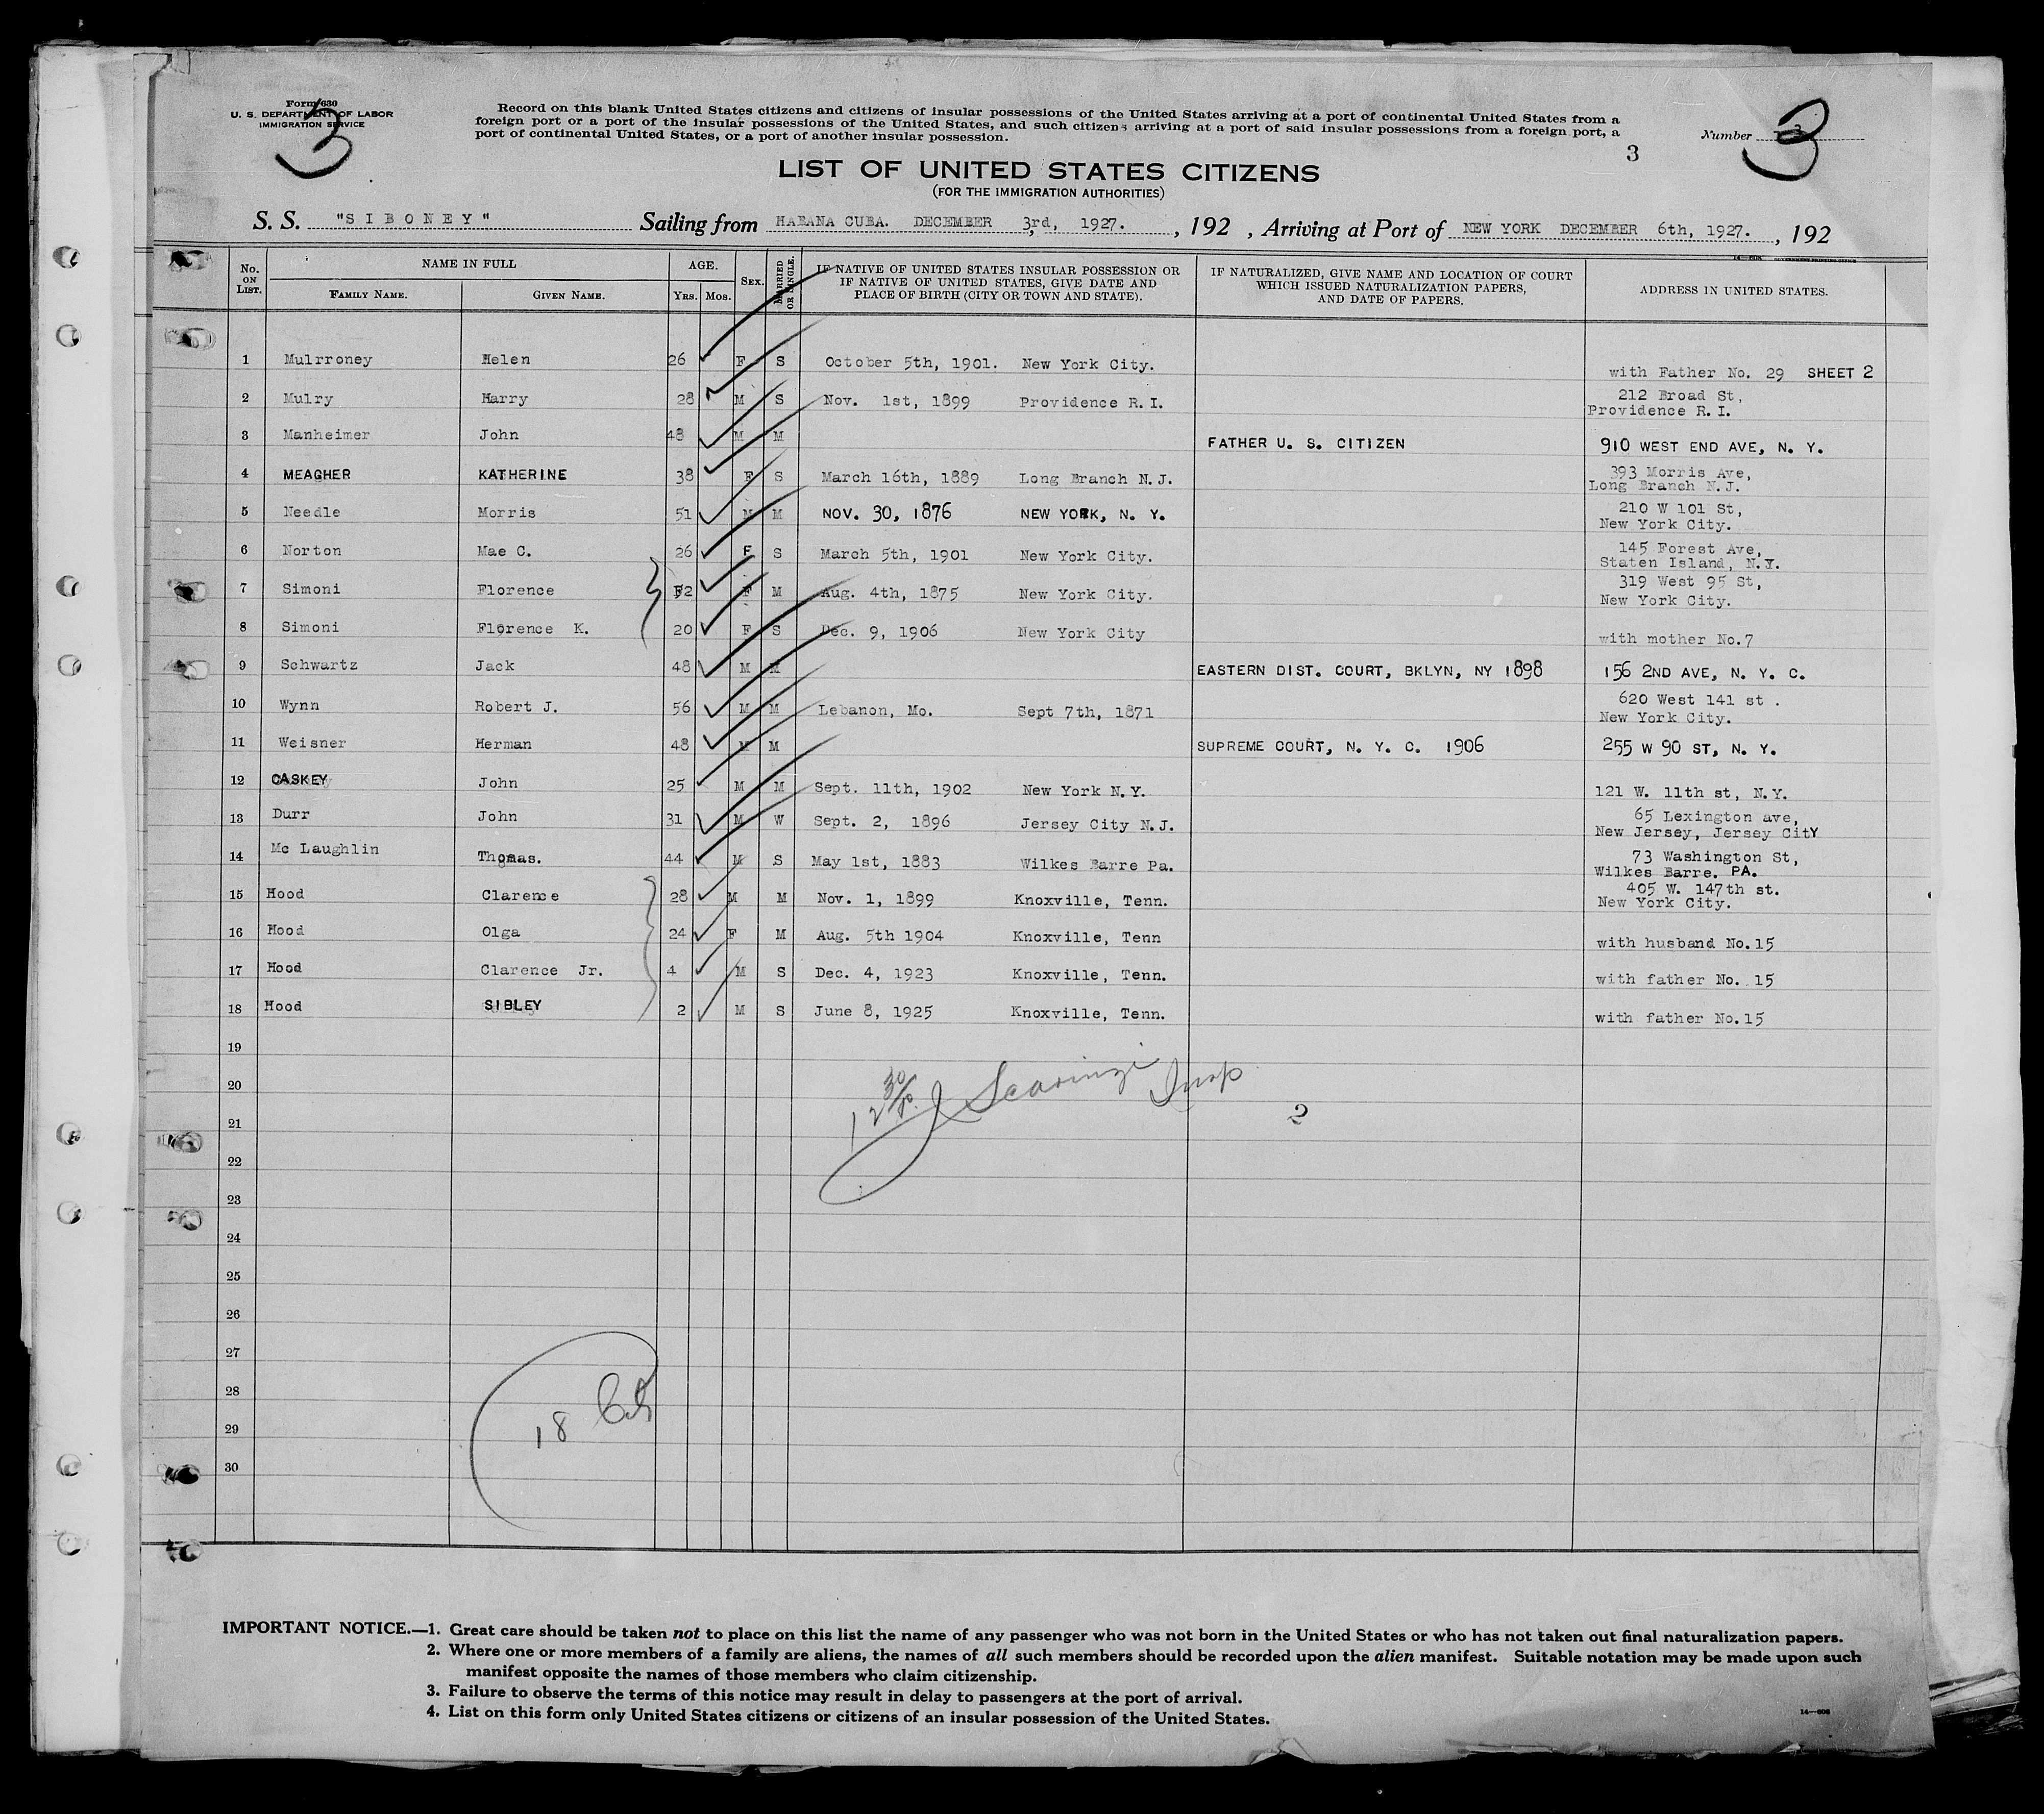 Form 630
U. S. DEPARTMENT OF LABOR
IMMIGRATION SERVICE
3
Record on this blank United States citizens and citizens of insular possessions of the United States arriving at a port of continental United States from a
foreign port or a port of the insular possessions of the United States, and such citizens arriving at a port of said insular possessions from a foreign port, a
port of continental United States, or a port of another insular possession.
Number 3
3
LIST OF UNITED STATES CITIZENS
(FOR THE IMMIGRATION AUTHORITIES)
S. S. "SIBONEY" Sailing from HABANA CUBA. DECEMBER 3rd, 1927. , 192 , Arriving at Port of NEW YORK DECEMBER 6th, 1927. , 192
No. ON LIST. NAME IN FULL AGE. SEX. MARRIED OR SINGLE. IF NATIVE OF UNITED STATES INSULAR POSSESSION OR IF NATIVE OF UNITED STATES, GIVE DATE AND PLACE OF BIRTH (CITY OR TOWN AND STATE). IF NATURALIZED, GIVE NAME AND LOCATION OF COURT WHICH ISSUED NATURALIZATION PAPERS, AND DATE OF PAPERS. ADDRESS IN UNITED STATES.
FAMILY NAME. GIVEN NAME. YRS. MOS.
1 Mulrroney Helen 26 F S October 5th, 1901. New York City. with Father No. 29 SHEET 2
2 Mulry Harry 28 M S Nov. 1st, 1899 Providence R.I. 212 Broad St, Providence R.I.
3 Manheimer John 48 M M FATHER U. S. CITIZEN 910 WEST END AVE, N. Y.
4 MEAGHER KATHERINE 38 F S March 16th, 1889 Long Branch N.J. 393 Morris Ave, Long Branch N.J.
5 Needle Morris 51 M M NOV. 30, 1876 NEW YORK, N. Y. 210 W 101 St, New York City.
6 Norton Mae C. 26 F S March 5th, 1901 New York City. 145 Forest Ave, Staten Island, N.Y.
7 Simoni Florence 52 F M Aug. 4th, 1875 New York City. 319 West 95 St, New York City.
8 Simoni Florence K. 20 F S Dec. 9, 1906 New York City with mother No.7
9 Schwartz Jack 48 M M EASTERN DIST. COURT, BKLYN, NY 1898 156 2ND AVE, N. Y. C.
10 Wynn Robert J. 56 M M Lebanon, Mo. Sept 7th, 1871 620 West 141 st . New York City.
11 Weisner Herman 48 M M SUPREME COURT, N. Y. C. 1906 255 W 90 ST, N. Y.
12 CASKEY John 25 M M Sept. 11th, 1902 New York N.Y. 121 W. 11th st, N.Y.
13 Durr John 31 M W Sept. 2, 1896 Jersey City N.J. 65 Lexington ave, New Jersey, Jersey CitY
14 Mc Laughlin Thomas. 44 M S May 1st, 1883 Wilkes Barre Pa. 73 Washington St, Wilkes Barre. PA.
15 Hood Clarence 28 M M Nov. 1, 1899 Knoxville, Tenn. 405 W. 147th st. New York City.
16 Hood Olga 24 F M Aug. 5th 1904 Knoxville, Tenn with husband No.15
17 Hood Clarence Jr. 4 M S Dec. 4, 1923 Knoxville, Tenn. with father No. 15
18 Hood SIBLEY 2 M S June 8, 1925 Knoxville, Tenn. with father No.15
19
20
21
22
23
24
25
26
27
28
29
30
12 30/P. J Scarinzi Insp
2
18
IMPORTANT NOTICE.—1. Great care should be taken not to place on this list the name of any passenger who was not born in the United States or who has not taken out final naturalization papers.
2. Where one or more members of a family are aliens, the names of all such members should be recorded upon the alien manifest. Suitable notation may be made upon such
manifest opposite the names of those members who claim citizenship.
3. Failure to observe the terms of this notice may result in delay to passengers at the port of arrival.
4. List on this form only United States citizens or citizens of an insular possession of the United States.